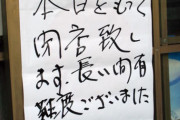 本日ともって
閉店致し
ます。長い間有
難度ございました